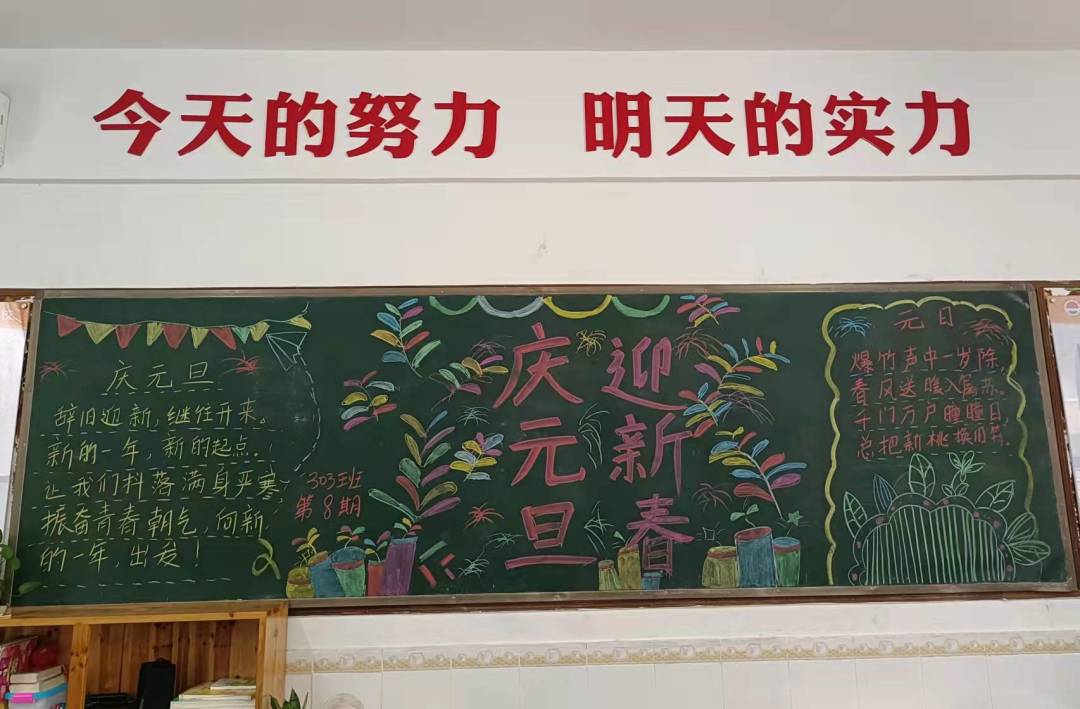 今天的努力 明天的实力
庆元旦
辞旧迎新,继往开来。
新的一年,新的起点。!
让我们抖落满身严寒,
振奋青春朝气,向新
的一年,出发!
303班
第8期
庆元旦
迎新春
元日
爆竹声中一岁除,
春风送暖入屠苏。
千门万户曈曈日,
总把新桃换旧符。